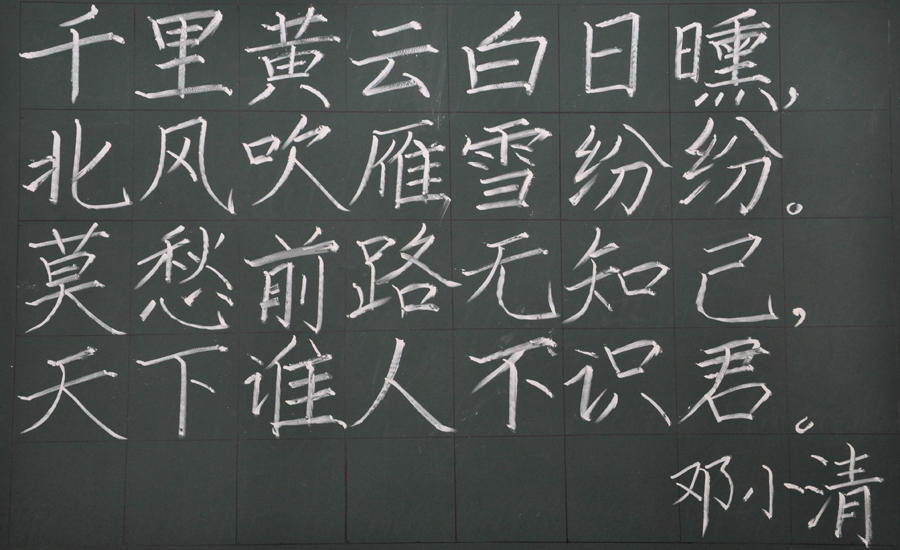 千里黄云白日曛，
北风吹雁雪纷纷。
莫愁前路无知己，
天下谁人不识君。
邓小清